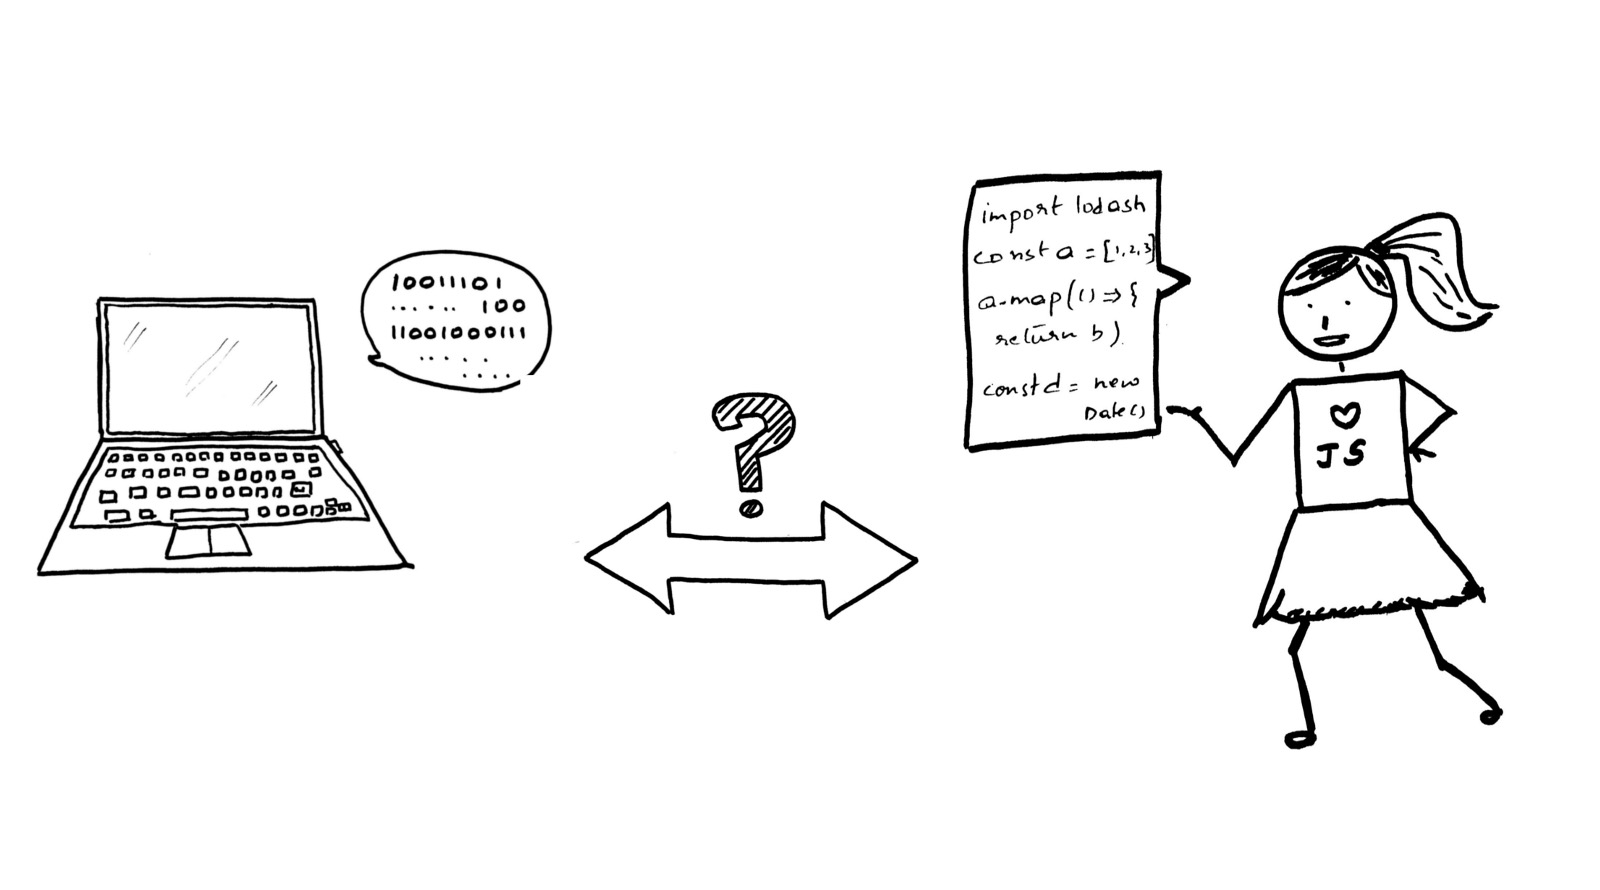 10011101
...... 100
11001000111
.....
....
?
import lodash
const a = [1,2,3]
a.map(() => {
return b).
const d = new
Date()
♡
JS